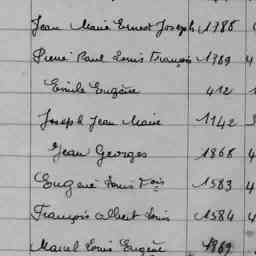 Jean Marie Ernest Joseph 1386
Pierre Paul Louis François 1369 4
Emile Eugène 412 1
Joseph Jean Marie 1142
Jean Georges 1868 4
Eugène Louis Fois 1583 4
François Albert Louis 1584 4
Marcel Louis Eugène 1869